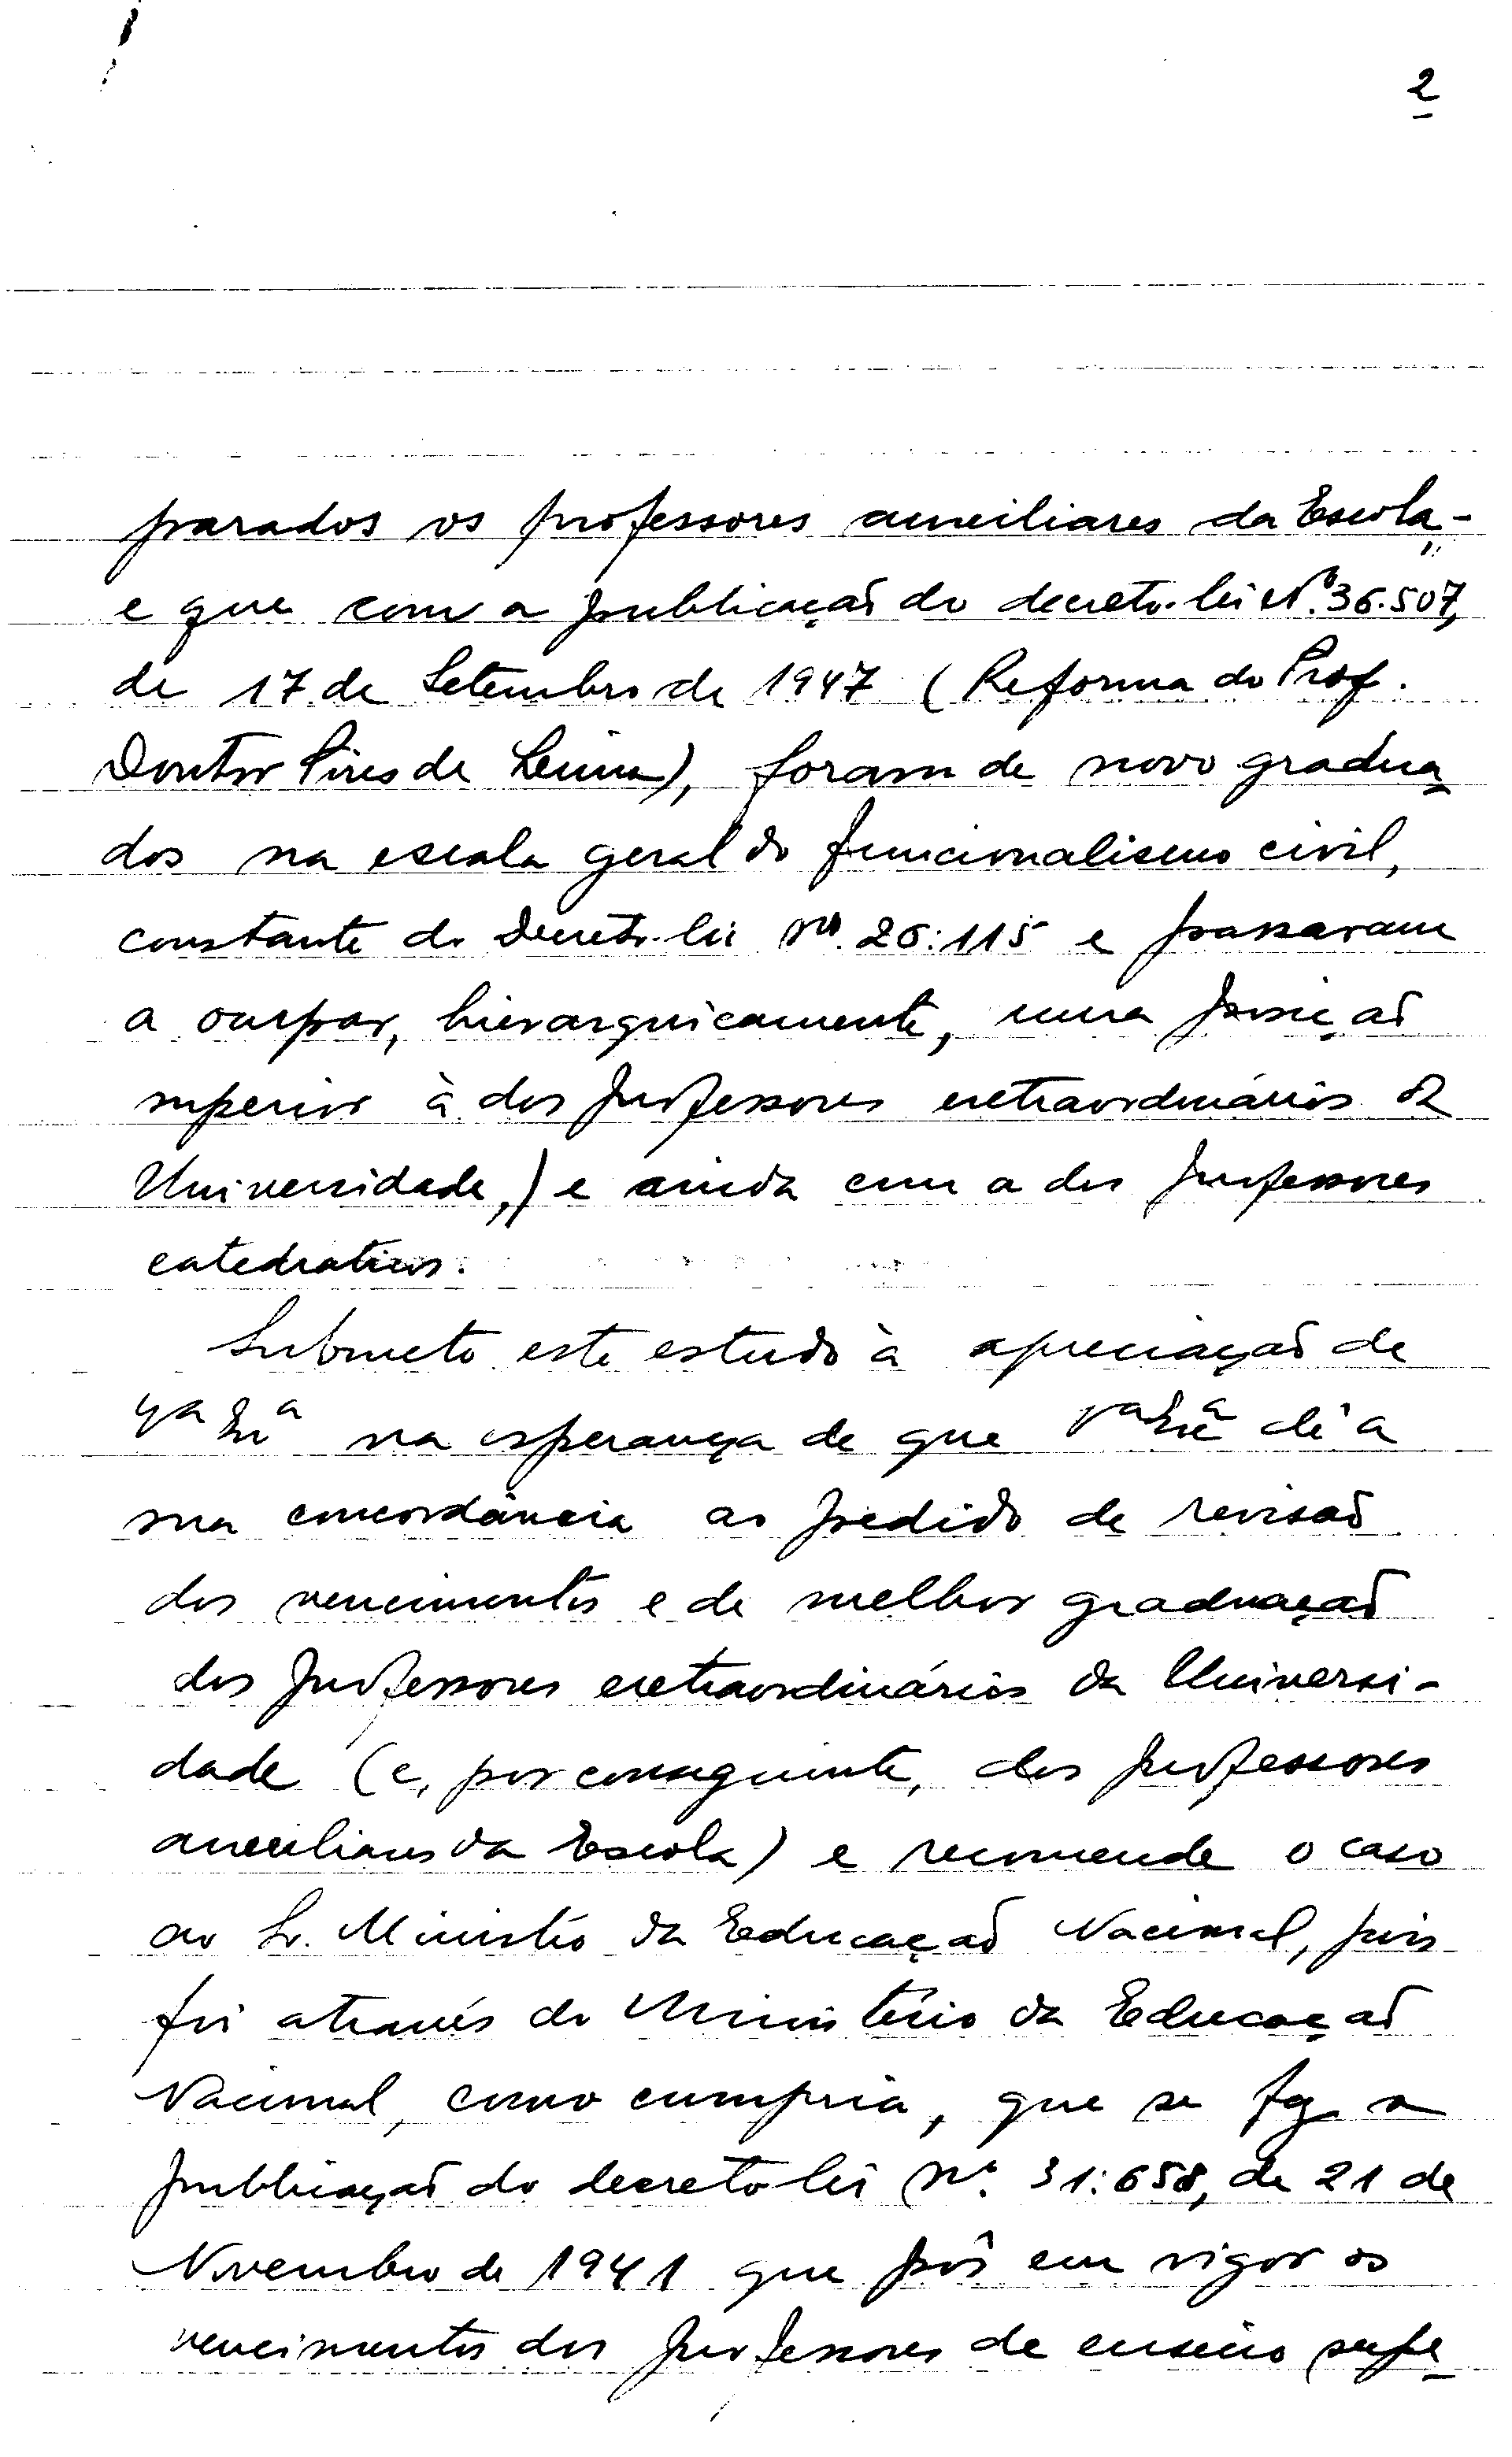 2
parados os professores auxiliares da Escola,-
e que com a publicação do decreto-lei Nº.36.507,
de 17 de Setembro de 1947 (Reforma do Prof.
Doutor Pires de Lima), foram de novo gradua
dos na escala geral do funcionalismo civil,
constante do Decreto-lei nº. 26:115 e passaram
a ocupar, hierarquicamente, uma posição
superior à dos professores extraordinários da
Universidade,) e ainda com a dos professores
catedraticos.
Submeto este estudo à apreciação de
Vª Exª na esperança de que Vª Exª dê a
sua concordância ao pedido de revisão
dos vencimentos e de melhor graduação
dos professores extraordinários da Universi-
dade (e, por conseguinte, dos professores
auxiliares da Escola) e recomende o caso
ao Sr. Ministro da Educação Nacional, pois
foi através do Ministério da Educação
Nacional, como cumpria, que se fez a
publicação do decreto lei nº. 31:658, de 21 de
Novembro de 1941 que pôs em vigor os
vencimentos dos professores de ensino supe